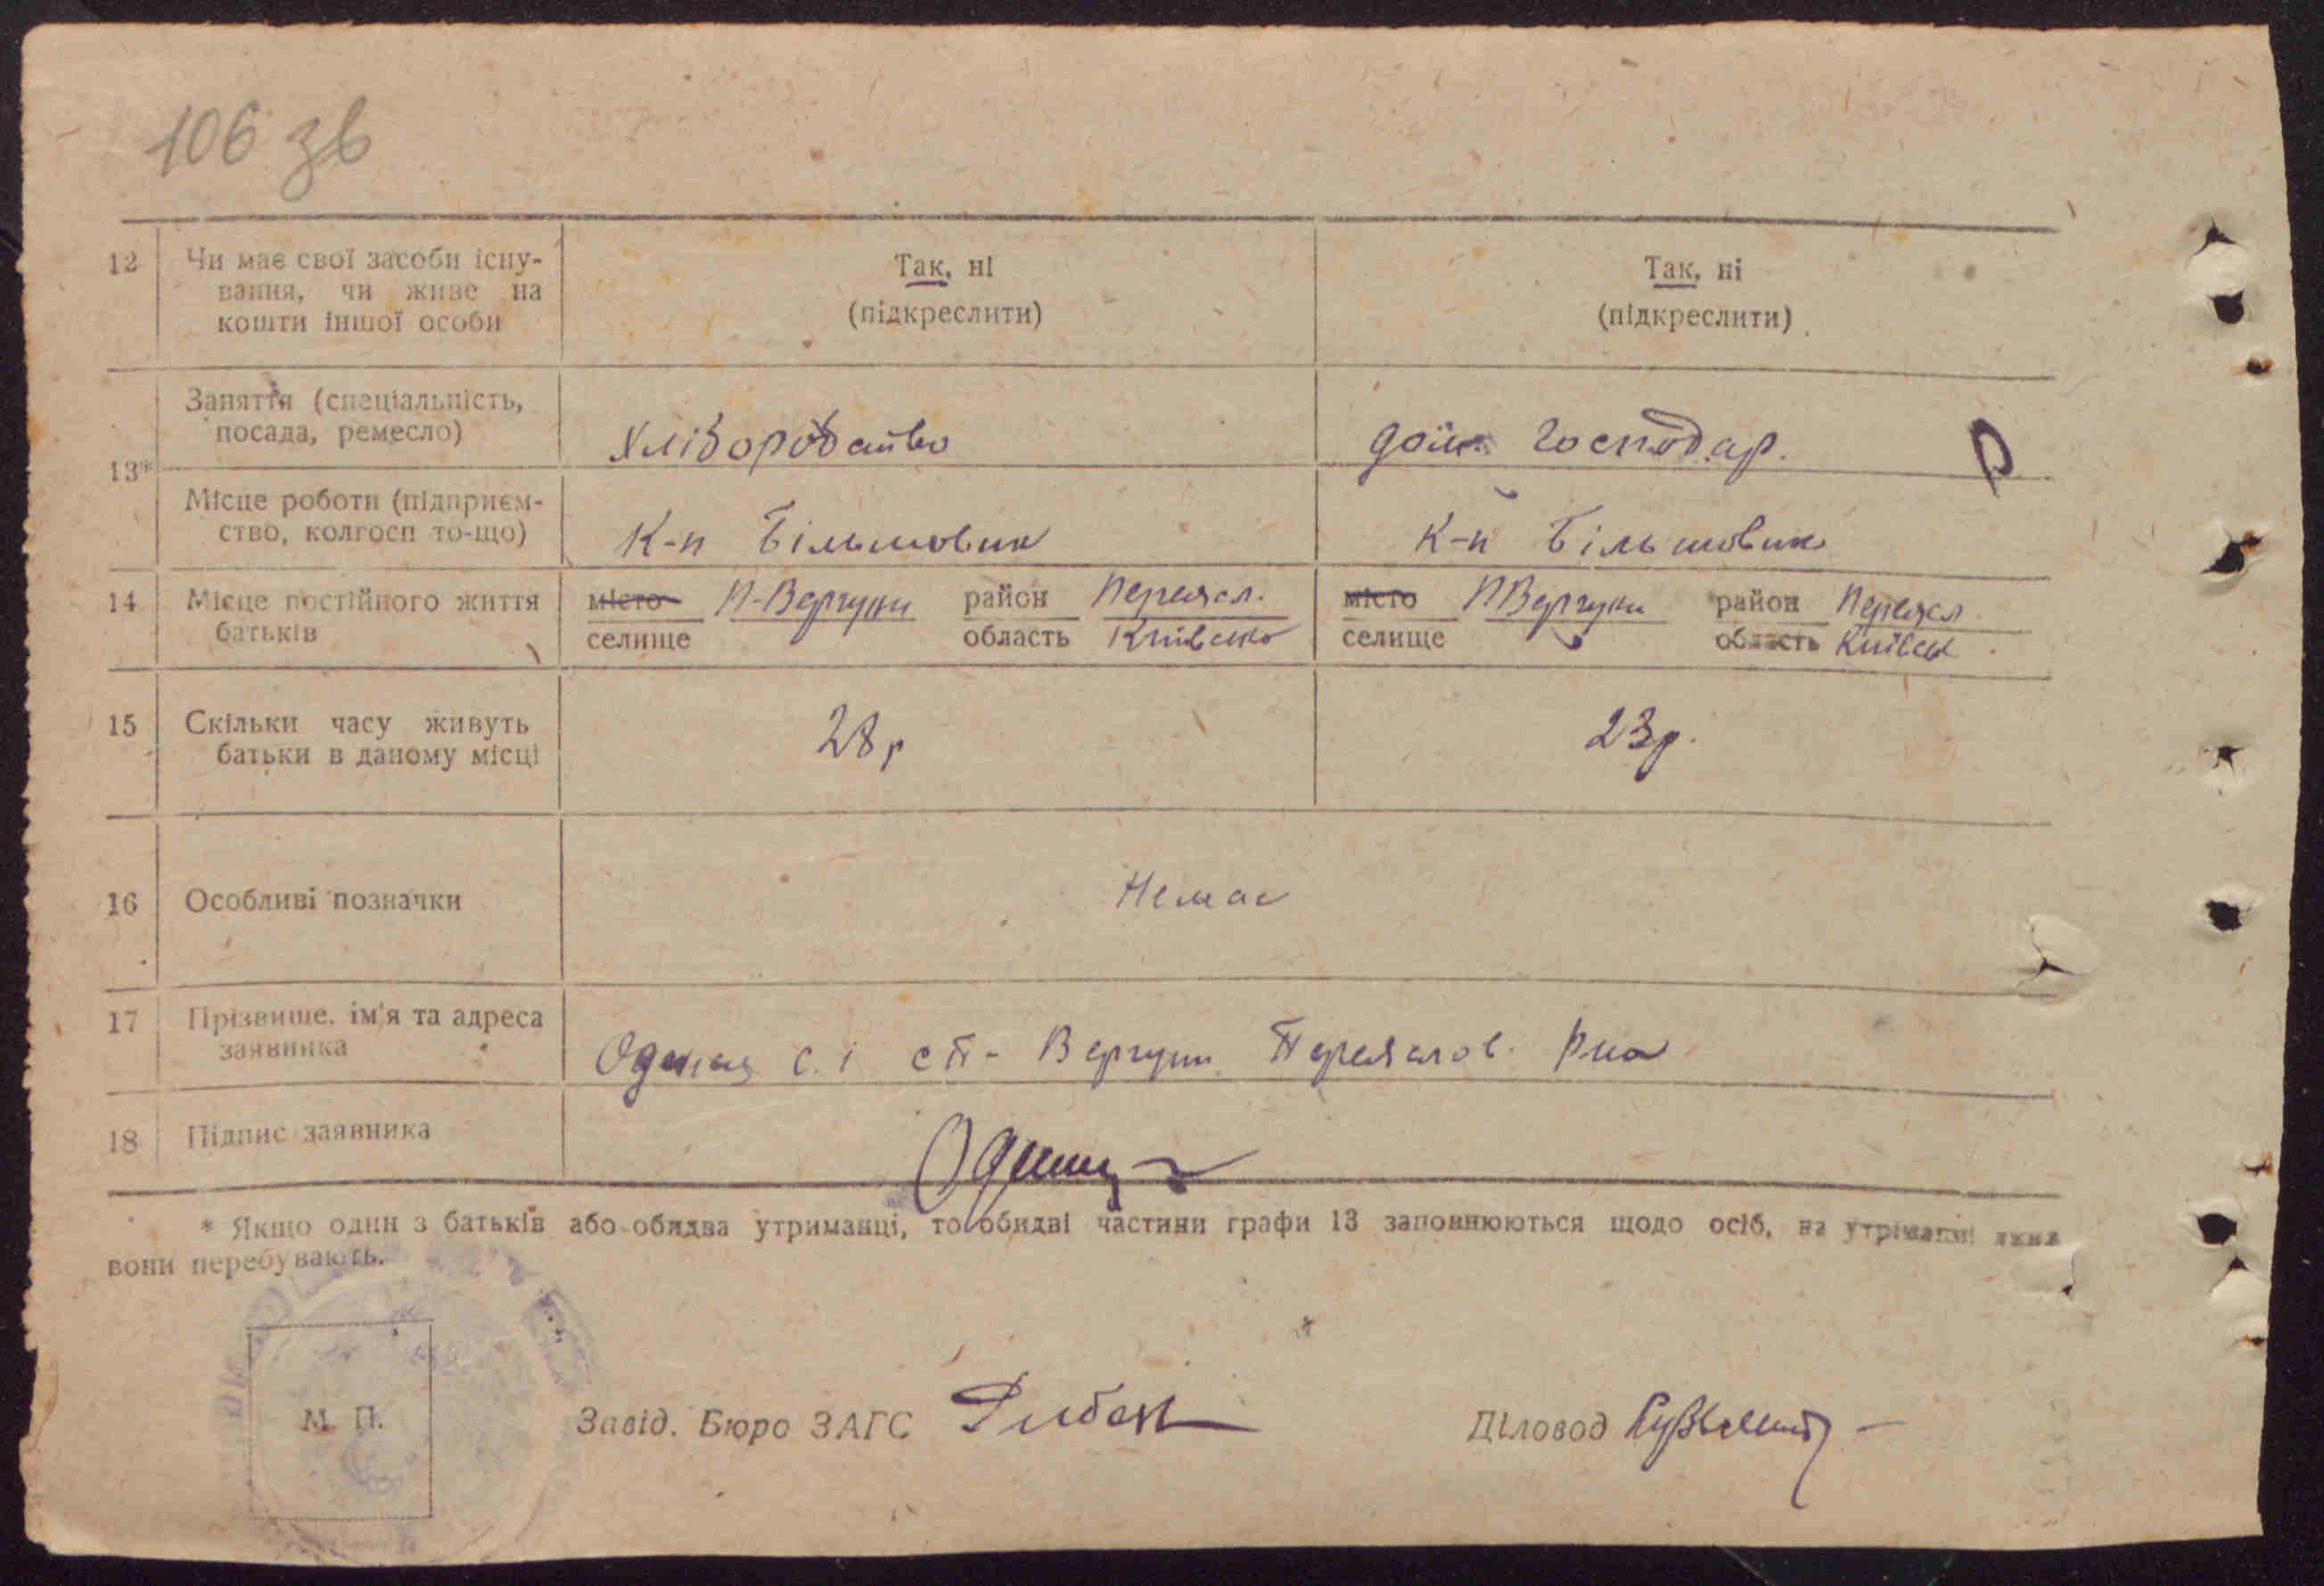 106 зв
12 Чи має свої засоби існу-
вання, чи живе на
кошти іншої особи
Так, ні
(підкреслити)
Так, ні
(підкреслити)
13*
Заняття (спеціальність,
посада, ремесло)
Хліборобство
дом. господар.
Р
Місце роботи (підприєм-
ство, колгосп то-що)
К-п Більшовик
К-п Більшовик
14 Місце постійного життя
батьків
місто
селище
П-Вергуни
район Переясл.
область Київсько
місто
селище
П Вергуни
район Переясл
область Київськ
15 Скільки часу живуть
батьки в даному місці
28 р
23 р.
16 Особливі позначки
Немає
17 Прізвище, ім'я та адреса
заявника
с. П- Вергуни Переяслов. р-на
18 Підпис заявника
* Якщо один з батьків або обидва утриманці, то обидві частини графи 13 заповнюються щодо осіб, на утриманні яких
вони перебувають.
М. П.
Завід. Бюро ЗАГС
Діловод